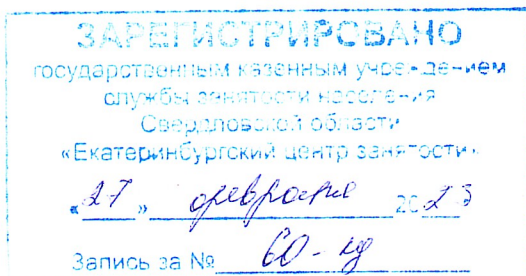 ЗАРЕГИСТРИРОВАНО
государственным казенным учреждением
службы занятости населения
Свердловской области
«Екатеринбургский центр занятости»
«27» февраля 2023
Запись за № 60-